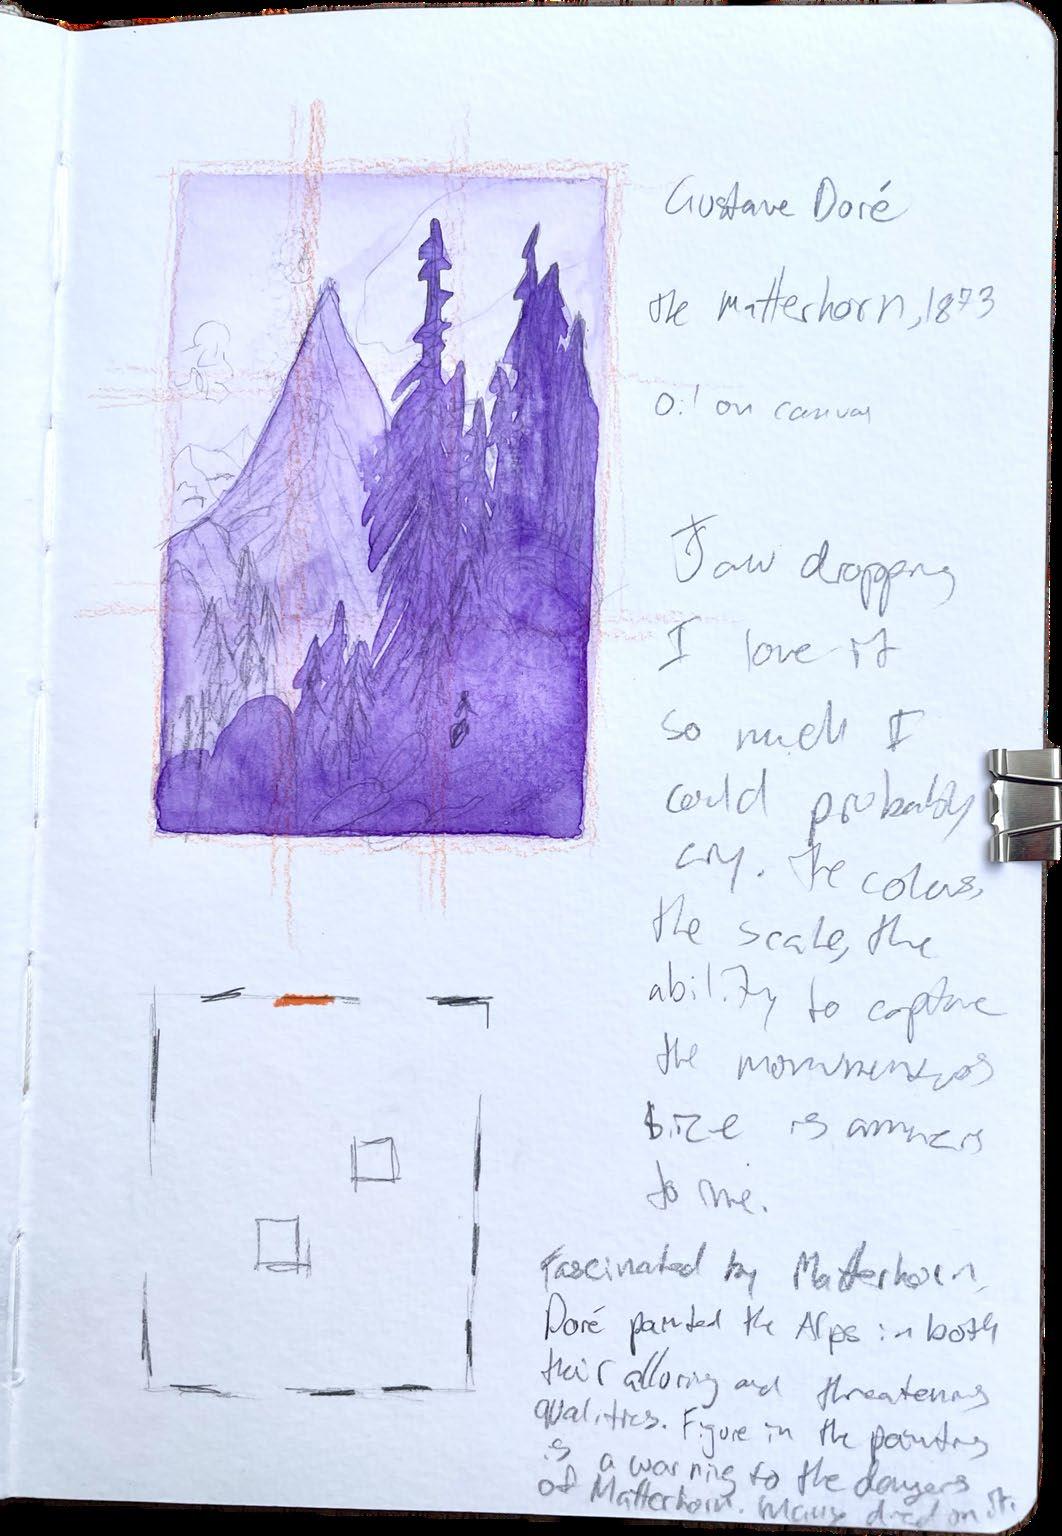 Gustave Doré
the Matterhorn, 1873
Oil on canvas
Jaw dropping
I love it
so much I
could probably
cry. The colors,
the scale, the
ability to capture
the monumentous
size is
to me.
Fascinated by Matterhorn,
Doré painted the Alps in both
their alluring and threatening
qualities. Figure in the painting
is a warning to the dangers
of Matterhorn. Many died on it.